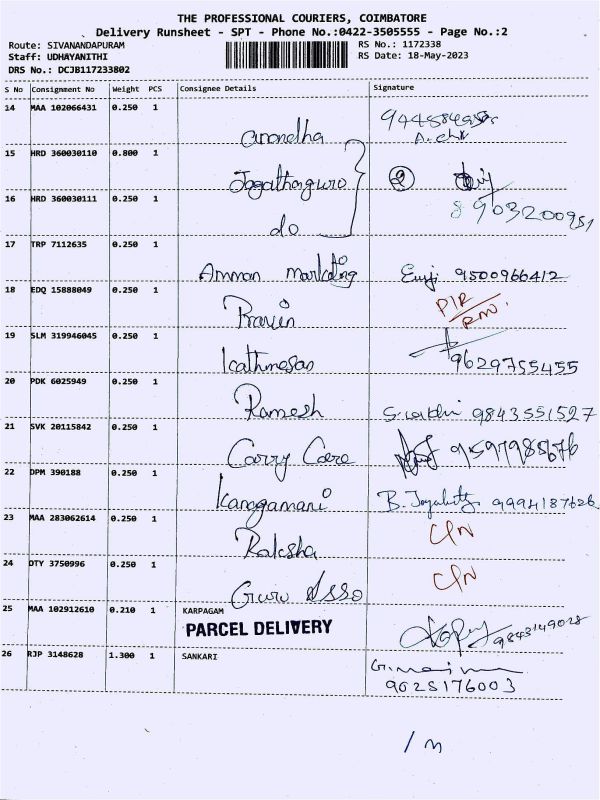 THE PROFESSIONAL COURIERS, COIMBATORE
Delivery Runsheet - SPT - Phone No.:0422-3505555 - Page No.:2
Route: SIVANANDAPURAM RS No.: 1172338
Staff: UDHAYANITHI RS Date: 18-May-2023
DRS No.: DCJB117233802
S No Consignment No Weight PCS Consignee Details Signature
14 MAA 102066431 0.250 1
anandha
15 HRD 360030110 0.800 1
Jagathguru 2
16 HRD 360030111 0.250 1 8903200951
do
17 TRP 7112635 0.250 1
Amman marketing 9500966412
18 EDQ 15888049 0.250 1 P/R
Pravin RMV.
19 SLM 319946045 0.250 1
Kathiresan 9629755455
20 PDK 6025949 0.250 1
Ramesh 9843551527
21 SVK 20115842 0.250 1
Carry Care 9597985676
22 DPM 390188 0.250 1
Kanagamani B. 9994187626
23 MAA 283062614 0.250 1 C/N
Raksha
24 OTY 3750996 0.250 1 C/N
Guru Asso
25 MAA 102912610 0.210 1 KARPAGAM
PARCEL DELIVERY 9843149028
26 RJP 3148628 1.300 1 SANKARI
9025176003